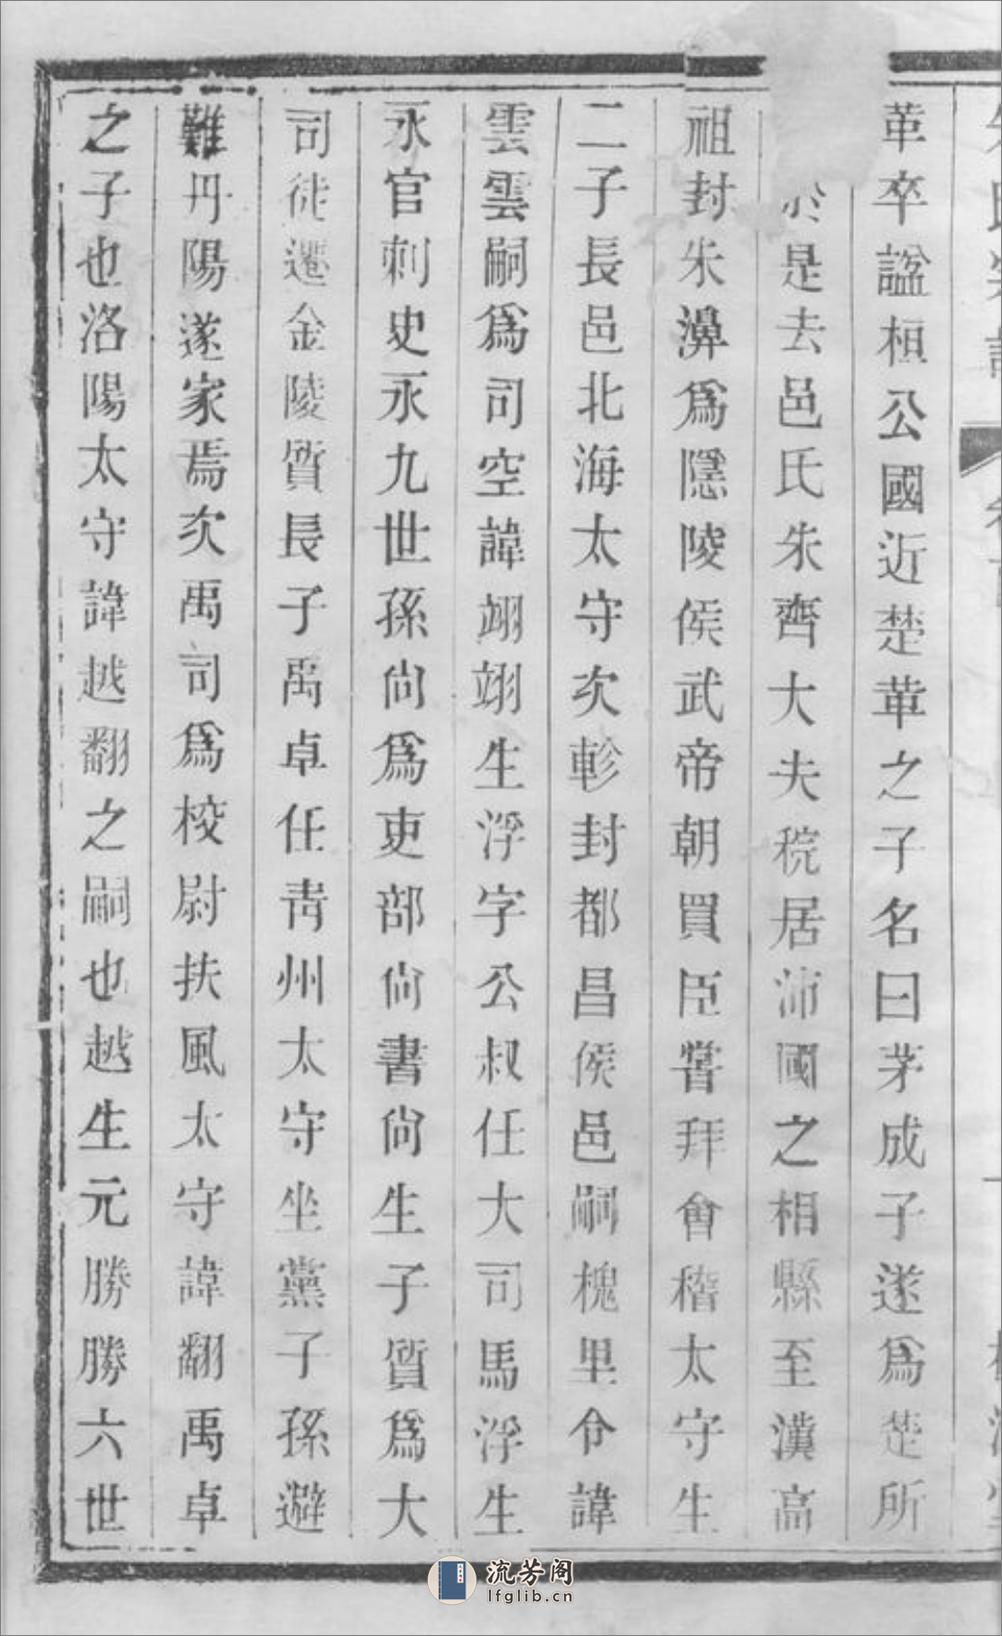 革卒諡桓公國近楚革之子名曰茅成子遂爲楚所
於是去邑氏朱齊大夫𥞇居沛國之相縣至漢高
祖封朱濞爲隱陵侯武帝朝買臣嘗拜會稽太守生
二子長邑北海太守次軫封都昌侯邑嗣槐里令諱
雲雲嗣爲司空諱翊翊生浮字公叔任大司馬浮生
永官刺史永九世孫尙爲吏部尙書尙生子質爲大
司徒遷金陵質長子禹卓任青州太守坐黨子孫避
難丹陽遂家焉次禹司爲校尉扶風太守諱翻禹卓
之子也洛陽太守諱越翻之嗣也越生元勝勝六世
流芳阁
lfglib.cn